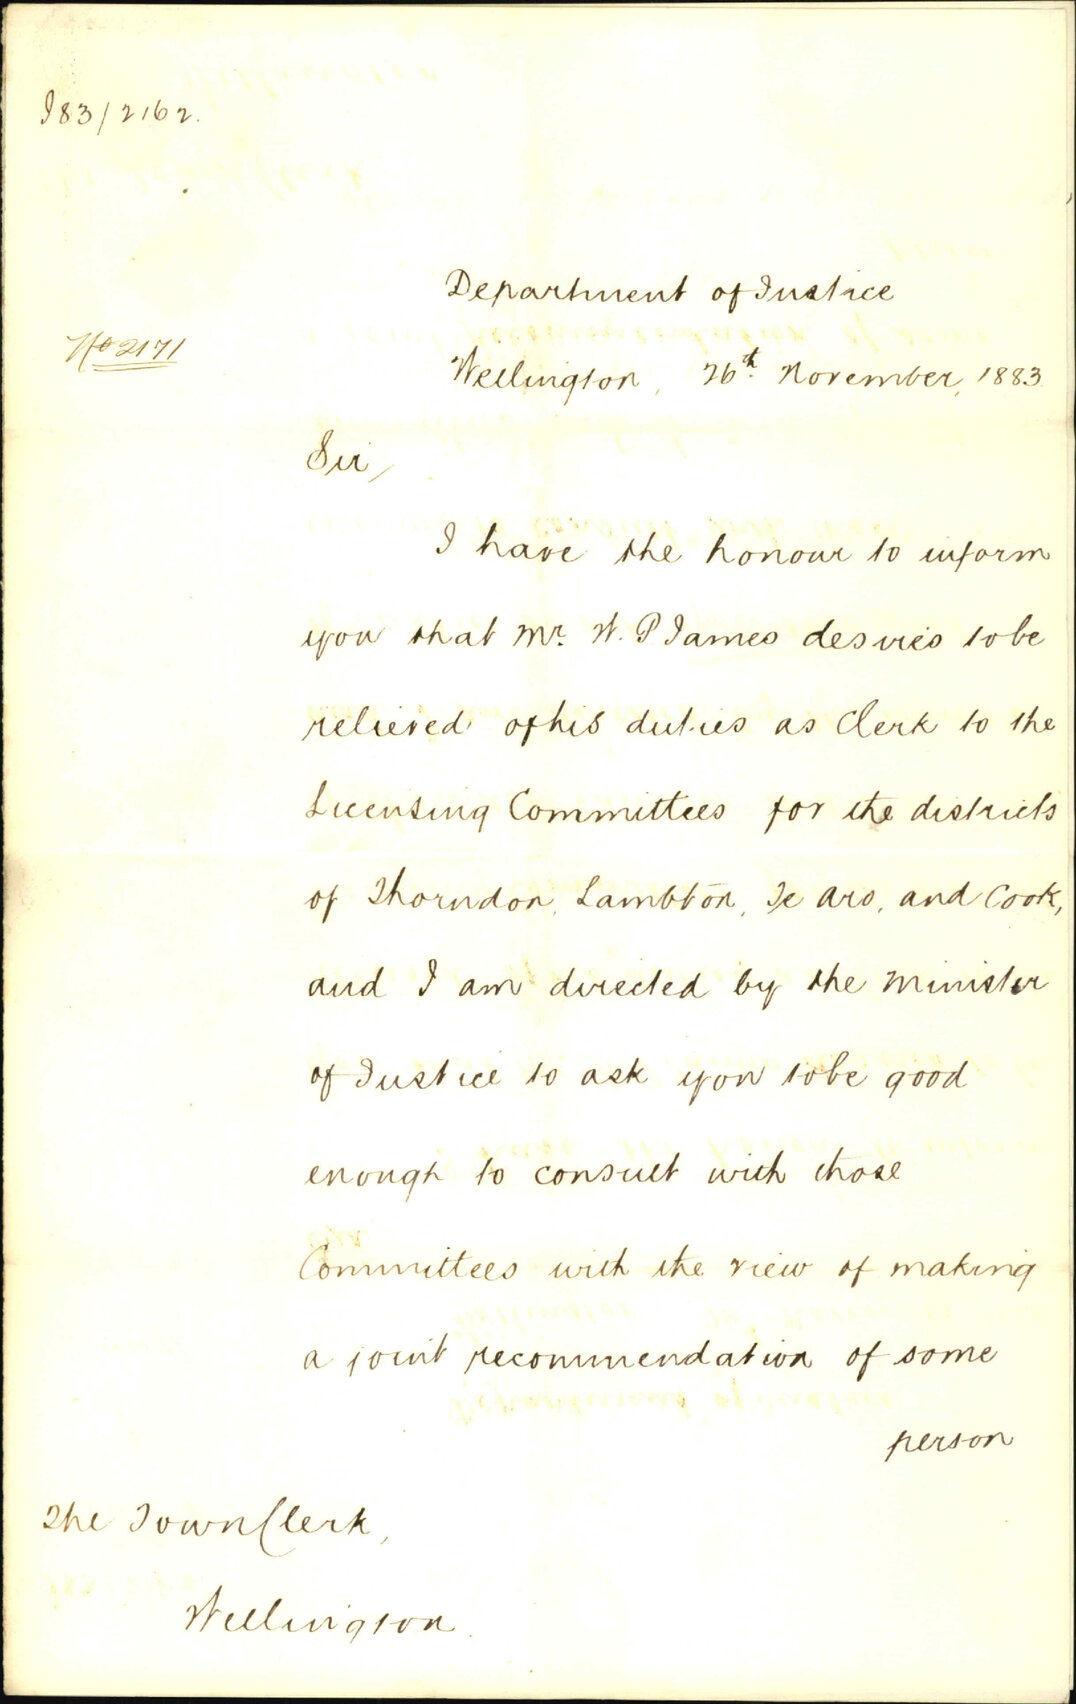 J83/2162.
Department of Justice
No 2171
Wellington, 26th November, 1883.
Sir,
I have the honour to inform
you that Mr. W. P. James desires to be
relieved of his duties as Clerk to the
Licensing Committees for the districts
of Thorndon, Lambton, Te Aro, and Cook,
and I am directed by the Minister
of Justice to ask you to be good
enough to consult with those
Committees with the view of making
a joint recommendation of some
person
The Town Clerk,
Wellington.